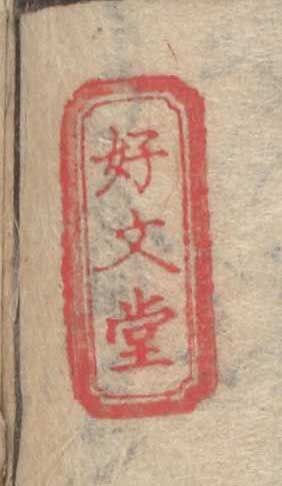 好文堂